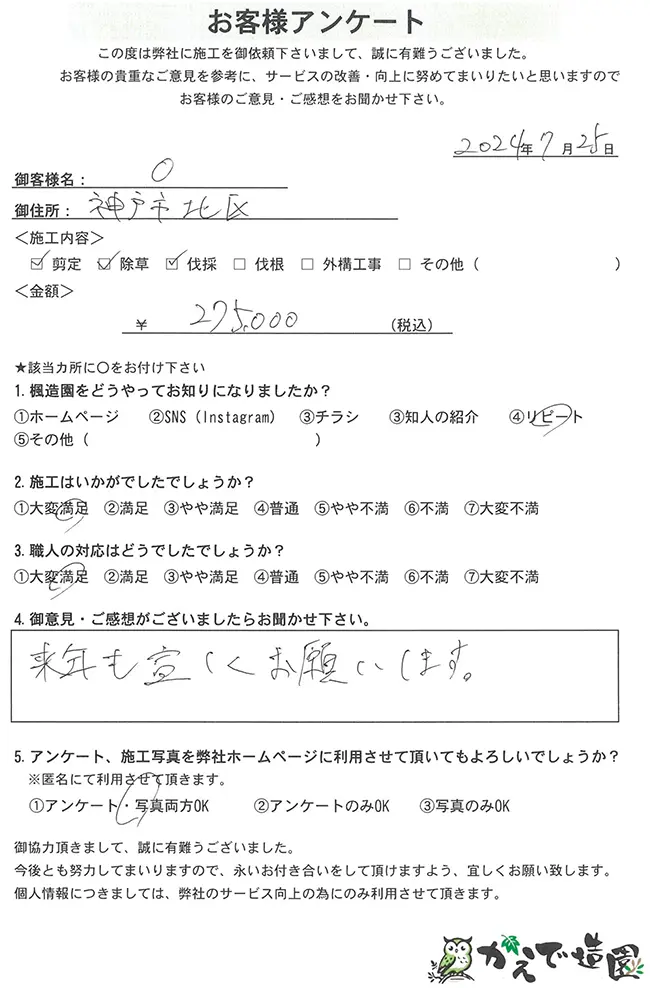 お客様アンケート
この度は弊社に施工を御依頼下さいまして、誠に有難うございました。
お客様の貴重なご意見を参考に、サービスの改善・向上に努めてまいりたいと思いますので
お客様のご意見・ご感想をお聞かせ下さい。
2024年7月25日
御客様名： O
御住所： 神戸市北区
＜施工内容＞
☑ 剪定 ☑ 除草 ☑ 伐採 □ 伐根 □ 外構工事 □ その他（ ）
＜金額＞
￥ 275,000 （税込）
★該当カ所に〇をお付け下さい
1. 楓造園をどうやってお知りになりましたか？
①ホームページ ②SNS（Instagram） ③チラシ ③知人の紹介 ④リピート
⑤その他（ ）
2. 施工はいかがでしたでしょうか？
①大変満足 ②満足 ③やや満足 ④普通 ⑤やや不満 ⑥不満 ⑦大変不満
3. 職人の対応はどうでしたでしょうか？
①大変満足 ②満足 ③やや満足 ④普通 ⑤やや不満 ⑥不満 ⑦大変不満
4. 御意見・ご感想がございましたらお聞かせ下さい。
来年も宜しくお願いします。
5. アンケート、施工写真を弊社ホームページに利用させて頂いてもよろしいでしょうか？
※匿名にて利用させて頂きます。
①アンケート・写真両方OK ②アンケートのみOK ③写真のみOK
御協力頂きまして、誠に有難うございました。
今後とも努力してまいりますので、永いお付き合いをして頂けますよう、宜しくお願い致します。
個人情報につきましては、弊社のサービス向上の為にのみ利用させて頂きます。
かえで造園